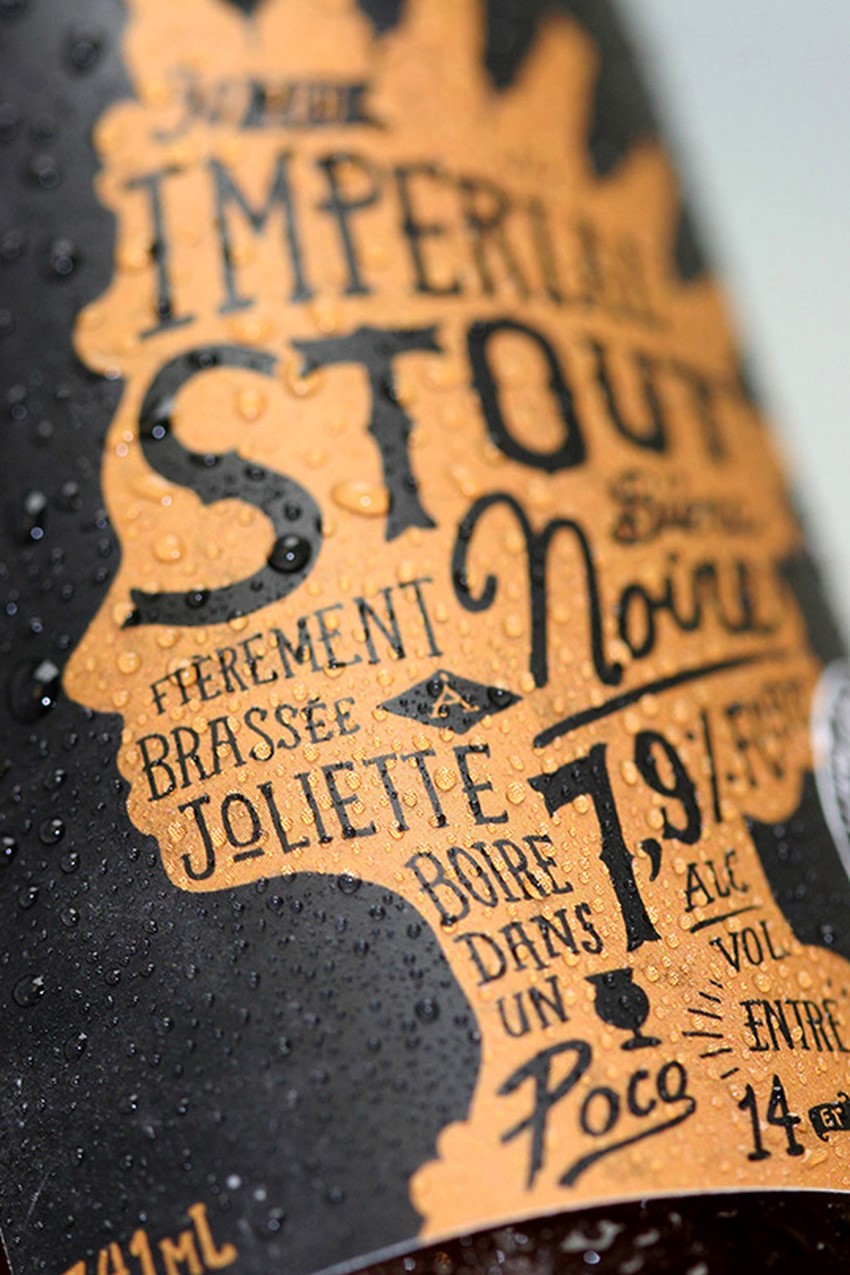 IMPERIAL
STOUT
Bière
Noire
FIÈREMENT
BRASSÉE À
JOLIETTE
7,9%
ALC
VOL.
BOIRE
DANS
UN
Poco
ENTRE
14 ET
341mL